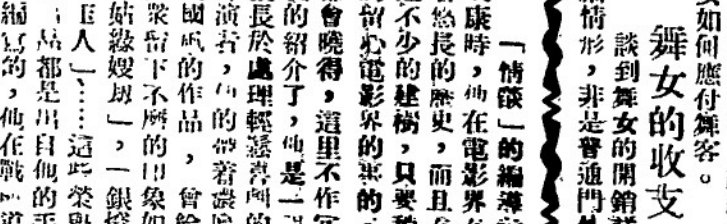 如何應付舞客。
舞女的收支
談到舞女的開銷
情形，非是普通門
「情燄」的編導
康時，他在電影界
悠長的歷史，而且
不少的建樹，只要
留心電影界的
會曉得，這里不作
的紹介了，他是一
長於處理輕喜劇的
演者，他的帶着濃
國風的作品，曾給
眾留下不磨的印象如
姑緣嫂刼」，「銀燈
玉人」……這些榮
品都是出自他的手
編寫的，他在戰